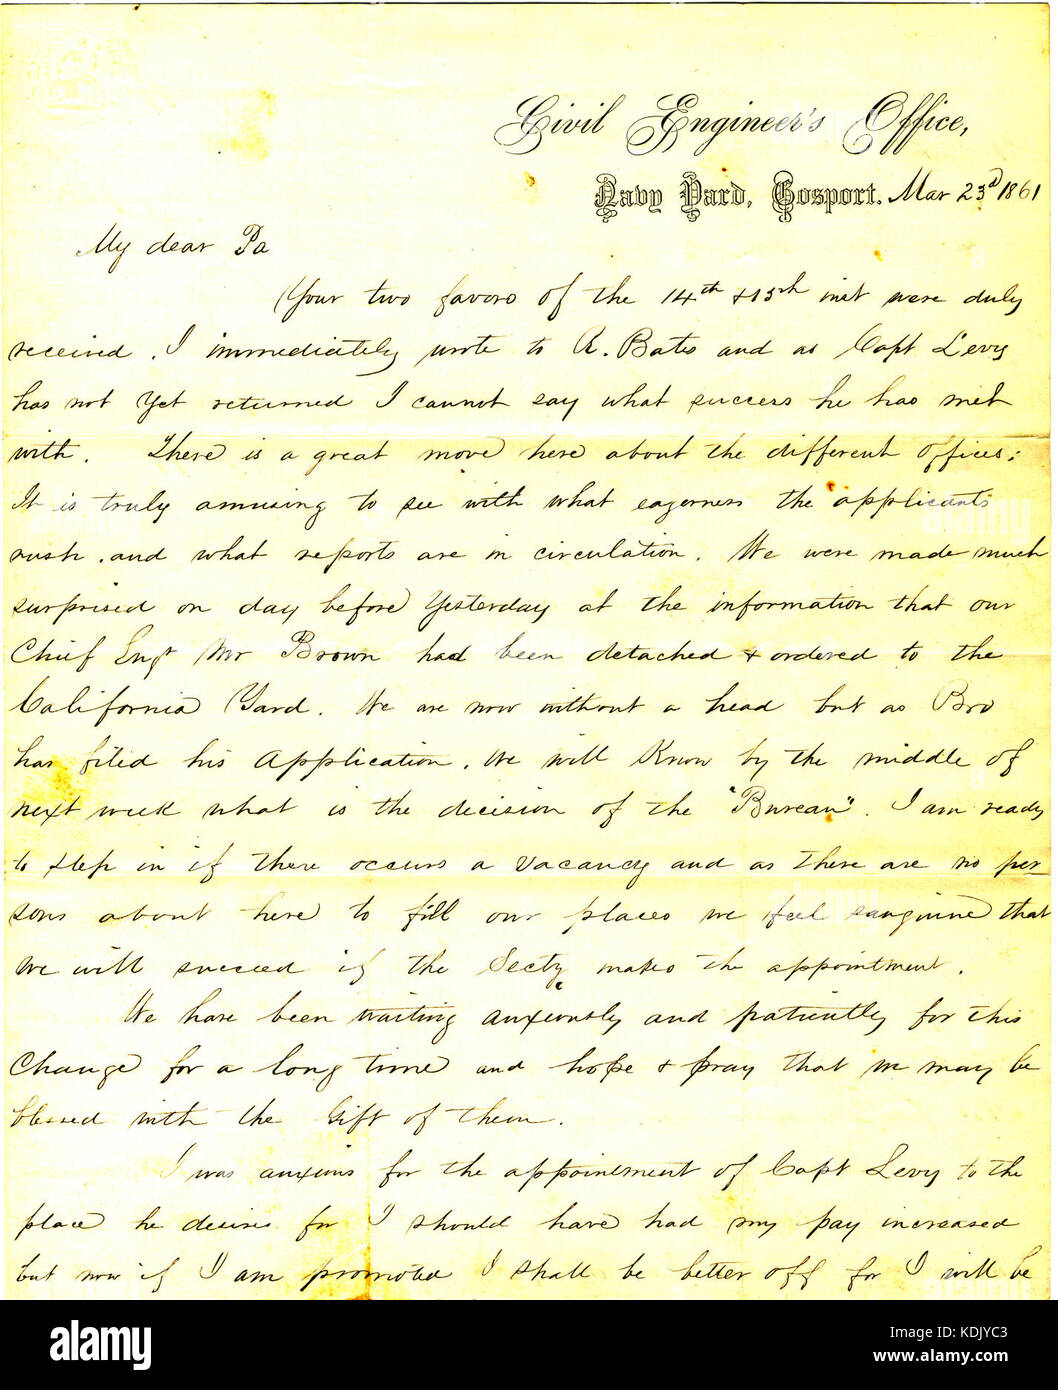 Civil Engineer's Office,
Navy Yard, Gosport. Mar 23d 1861
My dear Pa
Your two favors of the 14th & 15th inst were duly
received. I immediately wrote to R. Bates and as Capt Levy
has not yet returned I cannot say what success he has met
with. There is a great move here about the different offices;
It is truly amusing to see with what eagerness the applicants
rush. and what reports are in circulation. We were made much
surprised on day before Yesterday at the information that our
Chief Engr Mr Brown had been detached & ordered to the
California Yard. We are now without a head but as Bro
has filed his Application. We will Know by the middle of
next week what is the decision of the "Bureau". I am ready
to step in if there occurs a vacancy and as there are no per
sons about here to fill our places we feel sanguine that
we will succeed if the Secty makes the appointment.
We have been waiting anxiously and patiently for this
Change for a long time and hope & pray that we may be
blessed with the Gift of them.
I was anxious for the appointment of Capt Levy to the
place he desires for I should have had my pay increased
but now if I am promoted I shall be better off for I will be
alamy
Image ID: KDJYC3
www.alamy.com